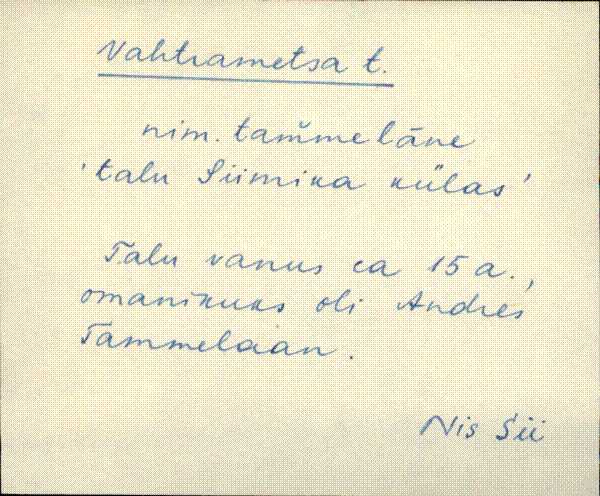 Vahtrametsa t.
nim. tam̆meläne
'talu Siimika külas'
Talu vanus ca 15 a.,
omanikuks oli Andres
Tammelaan.
Nis Sii